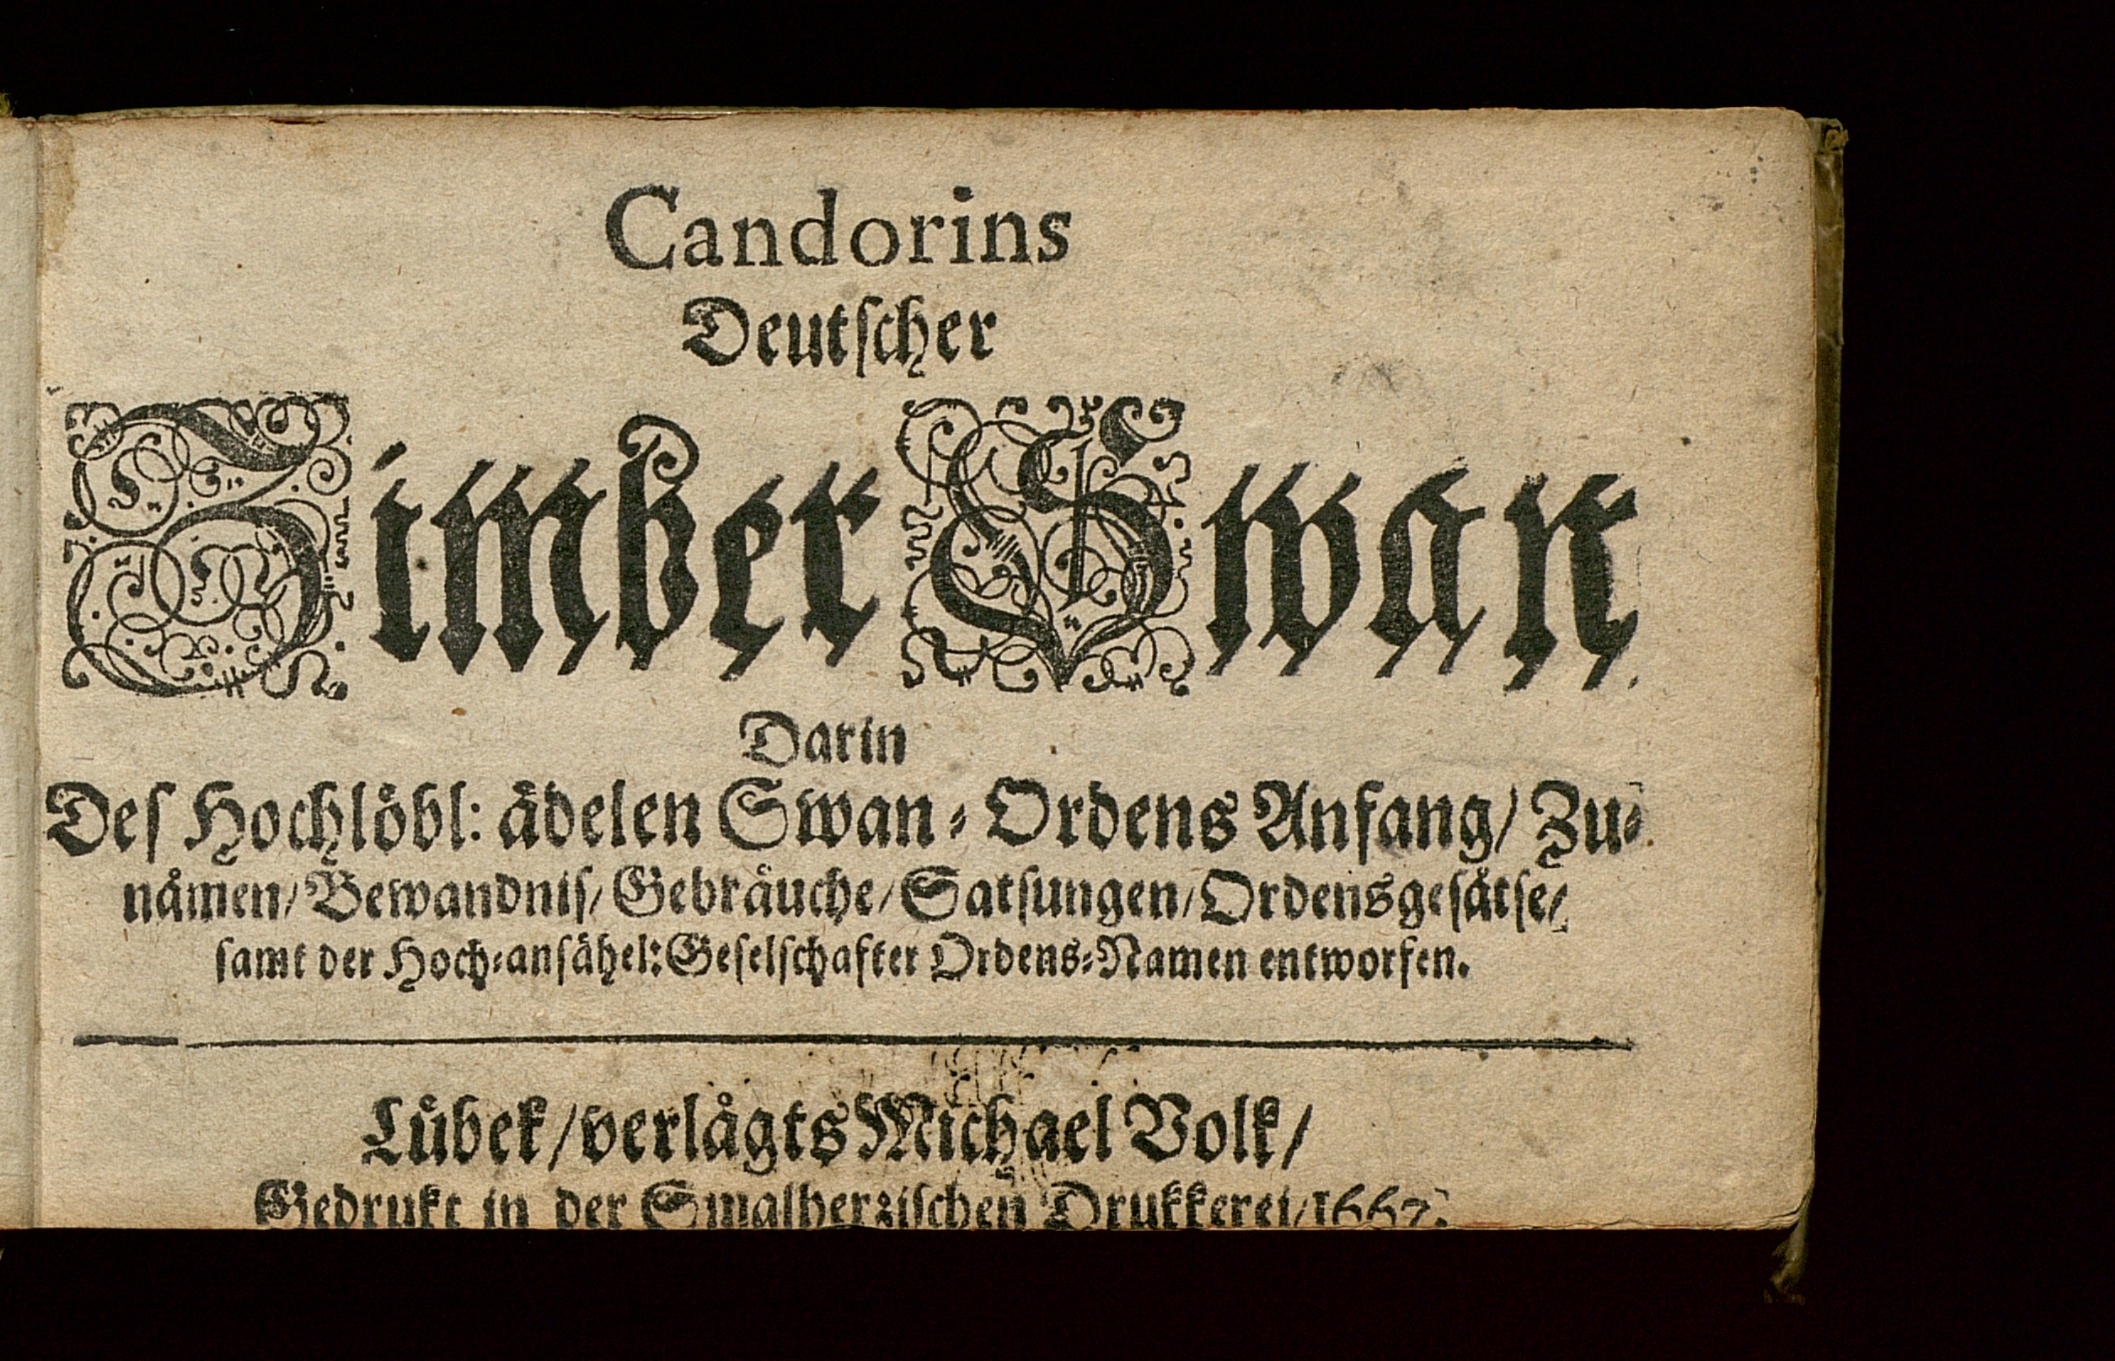 Candorins
Deutscher
Zimber Swan
Darin
Des Hochlöbl: ädelen Swan-Ordens Anfang/ Zu-
nämen/ Bewandnis/ Gebräuche/ Satsungen/ Ordensgesätse/
samt der Hoch-ansähel: Geselschafter Ordens-Namen entworfen.
Lübek/ verlägts Michael Volk/
Gedrukt in der Smalherzischen Drukkerei/ 1667.